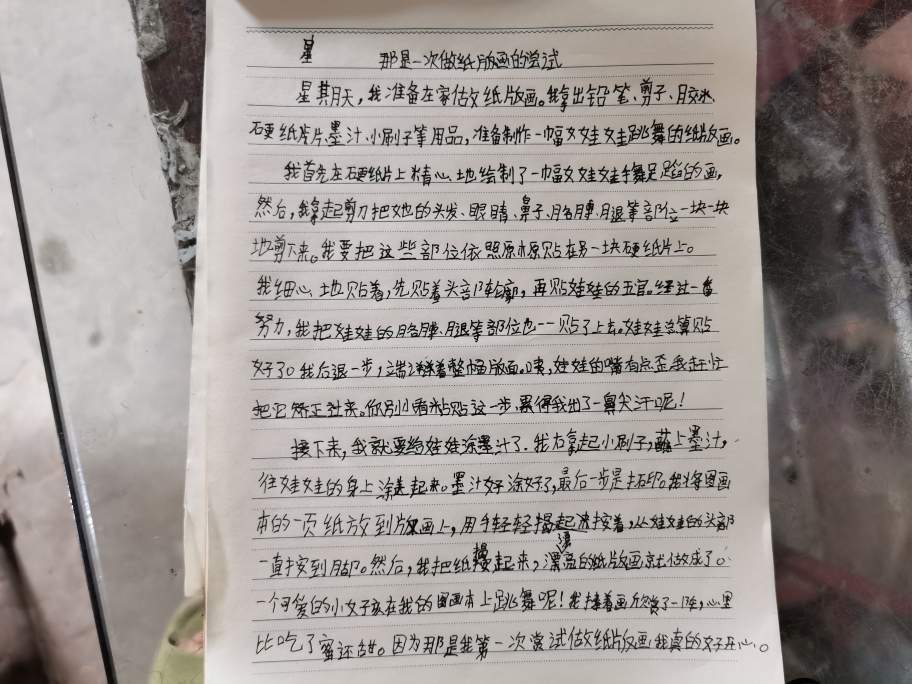 星
那是一次做纸版画的尝试
星其月天，我准备在家做纸版画。我拿出铅笔、剪子、胶水、
硬纸片、墨汁、小刷子等用品，准备制作一幅女娃娃跳舞的纸版画。
我首先在硬纸片上精心地绘制了一幅女娃娃手舞足蹈的画，
然后，我拿起剪刀把她的头发、眼睛、鼻子、胳膊、腿等部位一块一块
地剪下来。我要把这些部位依照原样贴在另一块硬纸片上。
我细心地贴着，先贴着头部轮廓，再贴娃娃的五官。经过一番
努力，我把娃娃的胳膊、腿等部位也一一贴了上去。娃娃总算贴
好了。我后退一步，端详着整幅版面。咦，娃娃的嘴有点歪，我赶忙
把它矫正过来。你别小看粘贴这一步，累得我出了一鼻尖汗呢！
接下来，我就要给娃娃涂墨汁了。我右拿起小刷子，蘸上墨汁，
往娃娃的身上涂起来。墨汁好涂好了，最后一步是拓印。我将图画
本的一页纸放到版画上，用手轻轻按着，从娃娃的头部
一直按到脚。然后，我把纸揭起来，漂亮的纸版画就做成了。
一个可爱的小女孩在我的图画本上跳舞呢！我接着画欣赏了一阵，心里
比吃了蜜还甜。因为那是我第一次尝试做纸版画，我真的好开心。